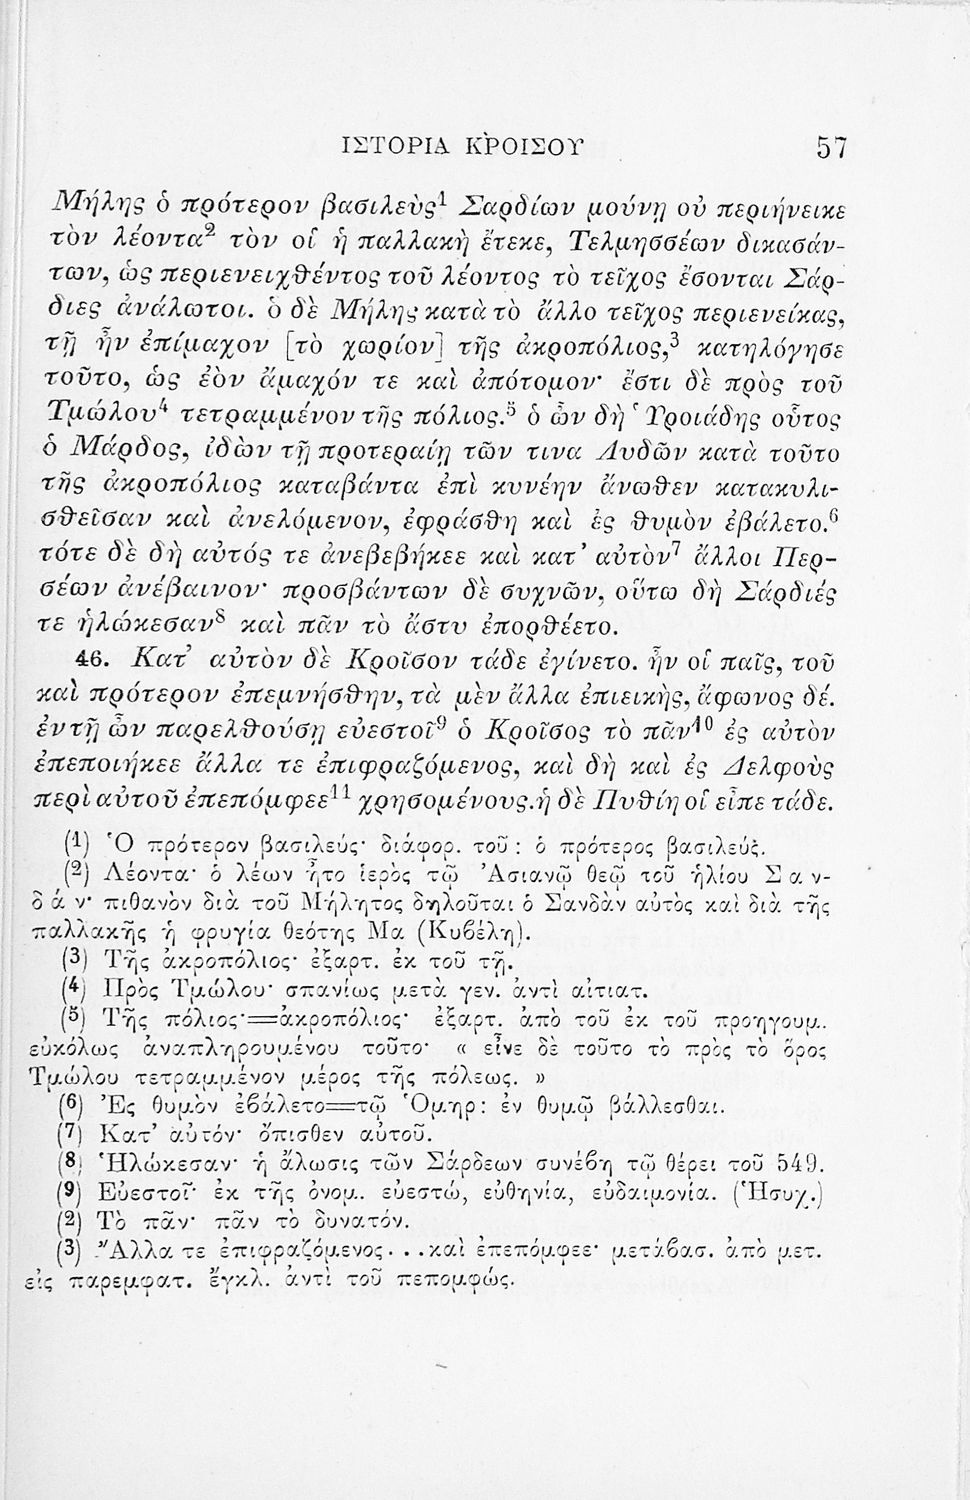 ΙΣΤΟΡΙΑ ΚΡΟΙΣΟΥ 57
Μήλης ὁ πρότερον βασιλεὺς¹ Σαρδίων μούνῃ οὐ περιήνεικε
τὸν λέοντα² τὸν οἱ ἡ παλλακὴ ἔτεκε, Τελμησσέων δικασάν-
των, ὡς περιενειχθέντος τοῦ λέοντος τὸ τεῖχος ἔσονται Σάρ-
διες ἀνάλωτοι. ὁ δὲ Μήλης κατὰ τὸ ἄλλο τεῖχος περιενείκας,
τῇ ἦν ἐπίμαχον [τὸ χωρίον] τῆς ἀκροπόλιος,³ κατηλόγησε
τοῦτο, ὡς ἐὸν ἄμαχόν τε καὶ ἀπότομον· ἔστι δὲ πρὸς τοῦ
Τμώλου⁴ τετραμμένον τῆς πόλιος.⁵ ὁ ὦν δὴ Ὑροιάδης οὗτος
ὁ Μάρδος, ἰδὼν τῇ προτεραίῃ τῶν τινα Λυδῶν κατὰ τοῦτο
τῆς ἀκροπόλιος καταβάντα ἐπὶ κυνέην ἄνωθεν κατακυλι-
σθεῖσαν καὶ ἀνελόμενον, ἐφράσθη καὶ ἐς θυμὸν ἐβάλετο.⁶
τότε δὲ δὴ αὐτός τε ἀνεβεβήκεε καὶ κατ' αὐτὸν⁷ ἄλλοι Περ-
σέων ἀνέβαινον· προσβάντων δὲ συχνῶν, οὕτω δὴ Σάρδιές
τε ἡλώκεσαν⁸ καὶ πᾶν τὸ ἄστυ ἐπορθέετο.
46. Κατ' αὐτὸν δὲ Κροῖσον τάδε ἐγίνετο. ἦν οἱ παῖς, τοῦ
καὶ πρότερον ἐπεμνήσθην, τὰ μὲν ἄλλα ἐπιεικὴς, ἄφωνος δέ.
ἐν τῇ ὦν παρελθούσῃ εὐεστοῖ⁹ ὁ Κροῖσος τὸ πᾶν¹⁰ ἐς αὐτὸν
ἐπεποιήκεε ἄλλα τε ἐπιφραζόμενος, καὶ δὴ καὶ ἐς Δελφοὺς
περὶ αὐτοῦ ἐπεπόμφεε¹¹ χρησομένους. ἡ δὲ Πυθίη οἱ εἶπε τάδε.
(1) Ὁ πρότερον βασιλεύς· διάφορ. τοῦ : ὁ πρότερος βασιλεύς.
(2) Λέοντα· ὁ λέων ἦτο ἱερὸς τῷ Ἀσιανῷ θεῷ τοῦ ἡλίου Σαν-
δάν· πιθανὸν διὰ τοῦ Μήλητος δηλοῦται ὁ Σανδὰν αὐτὸς καὶ διὰ τῆς
παλλακῆς ἡ φρυγία θεότης Μα (Κυβέλη).
(3) Τῆς ἀκροπόλιος· ἐξαρτ. ἐκ τοῦ τῇ.
(4) Πρὸς Τμώλου· σπανίως μετὰ γεν. ἀντὶ αἰτιατ.
(5) Τῆς πόλιος·=ἀκροπόλιος· ἐξαρτ. ἀπὸ τοῦ ἐκ τοῦ προηγουμ.
εὐκόλως ἀναπληρουμένου τοῦτο· « εἶνε δὲ τοῦτο τὸ πρὸς τὸ ὄρος
Τμώλου τετραμμένον μέρος τῆς πόλεως. »
(6) Ἐς θυμὸν ἐβάλετο=τῷ Ὁμηρ: ἐν θυμῷ βάλλεσθαι.
(7) Κατ' αὐτόν· ὄπισθεν αὐτοῦ.
(8) Ἡλώκεσαν· ἡ ἅλωσις τῶν Σάρδεων συνέβη τῷ θέρει τοῦ 549.
(9) Εὐεστοῖ· ἐκ τῆς ὀνομ. εὐεστώ, εὐθηνία, εὐδαιμονία. (Ἡσυχ.)
(2) Τὸ πᾶν· πᾶν τὸ δυνατόν.
(3) Ἄλλα τε ἐπιφραζόμενος. . .καὶ ἐπεπόμφεε· μετάβασ. ἀπὸ μετ.
εἰς παρεμφατ. ἔγκλ. ἀντὶ τοῦ πεπομφώς.